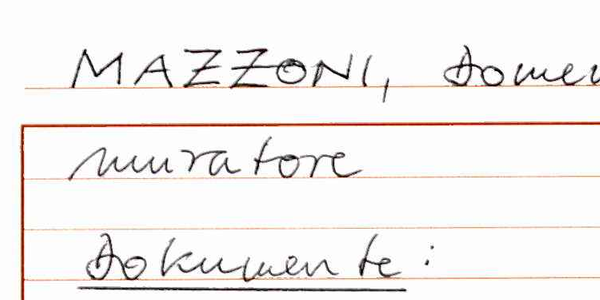 MAZZONI, Domen
muratore
Dokumente: